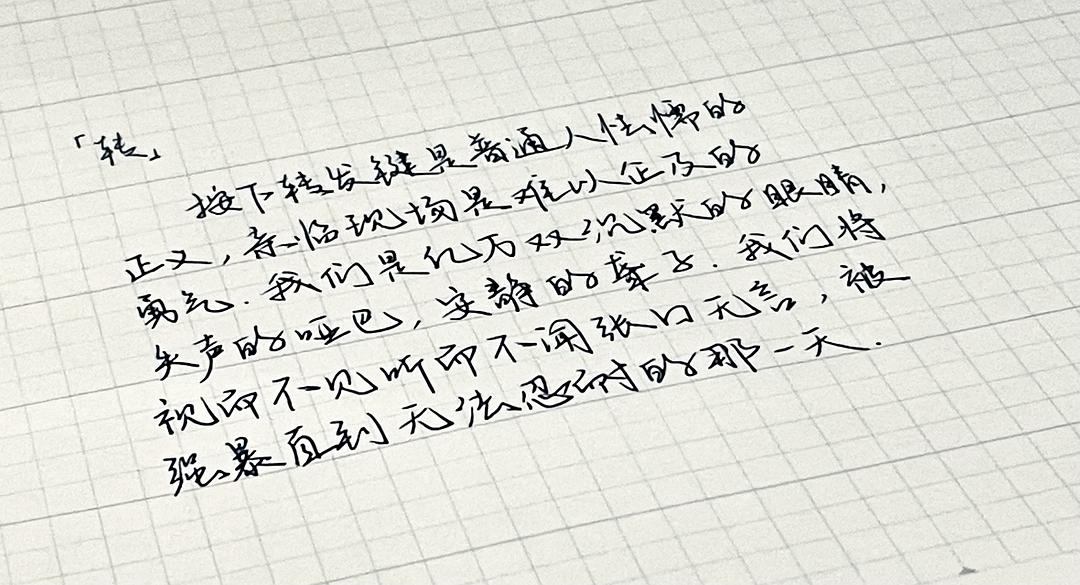 「转」
按下转发键是普通人怯懦的
正义，亲临现场是难以企及的
勇气.我们是亿万双沉默的眼睛，
失声的哑巴，安静的聋子.我们将
视而不见听而不闻张口无言，被
强暴直到无法忍耐的那一天.